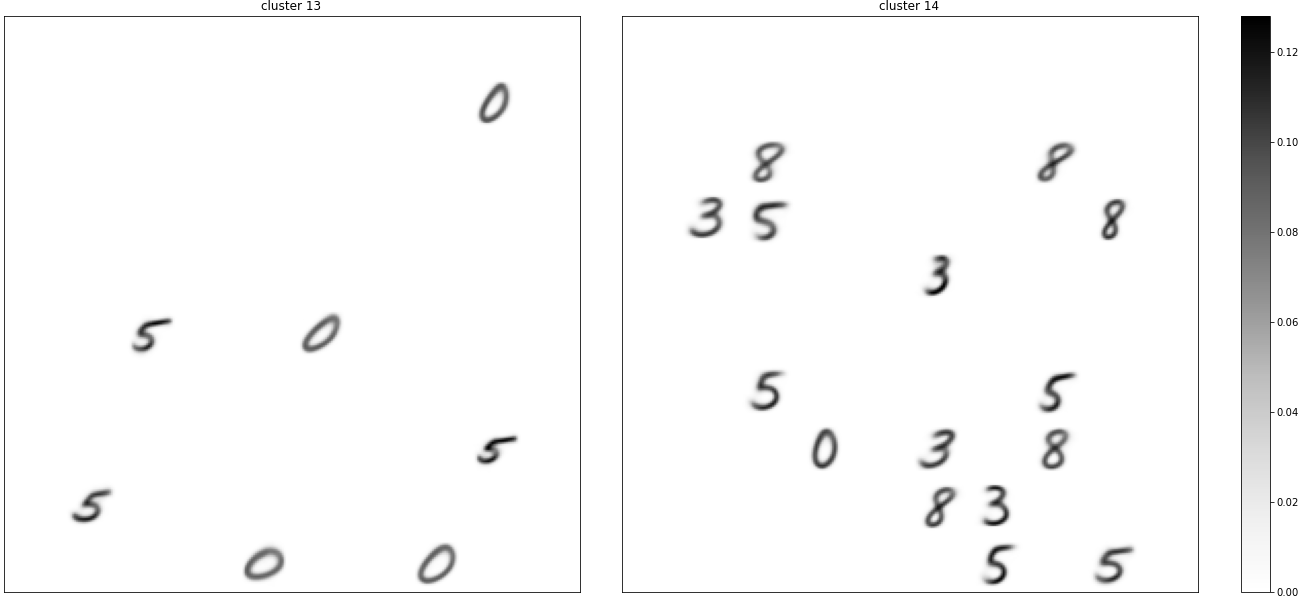 cluster 13
0
5 0
5
5
0 0
cluster 14
8 8
3 5 8
3
5 5
0 3 8
8 3
5 5
0.12
0.10
0.08
0.06
0.04
0.02
0.00